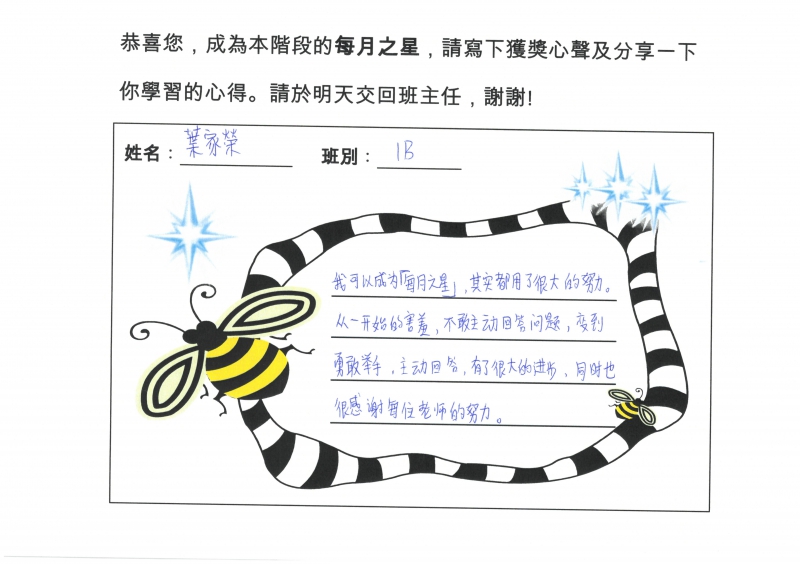 恭喜您，成為本階段的每月之星，請寫下獲獎心聲及分享一下
你學習的心得。請於明天交回班主任，謝謝!
姓名：葉家榮 班別：1B
我可以成为「每月之星」，其实都用了很大的努力。
从一开始的害羞，不敢主动回答问题，变到
勇敢举手，主动回答，有了很大的进步，同时也
很感谢每位老师的努力。